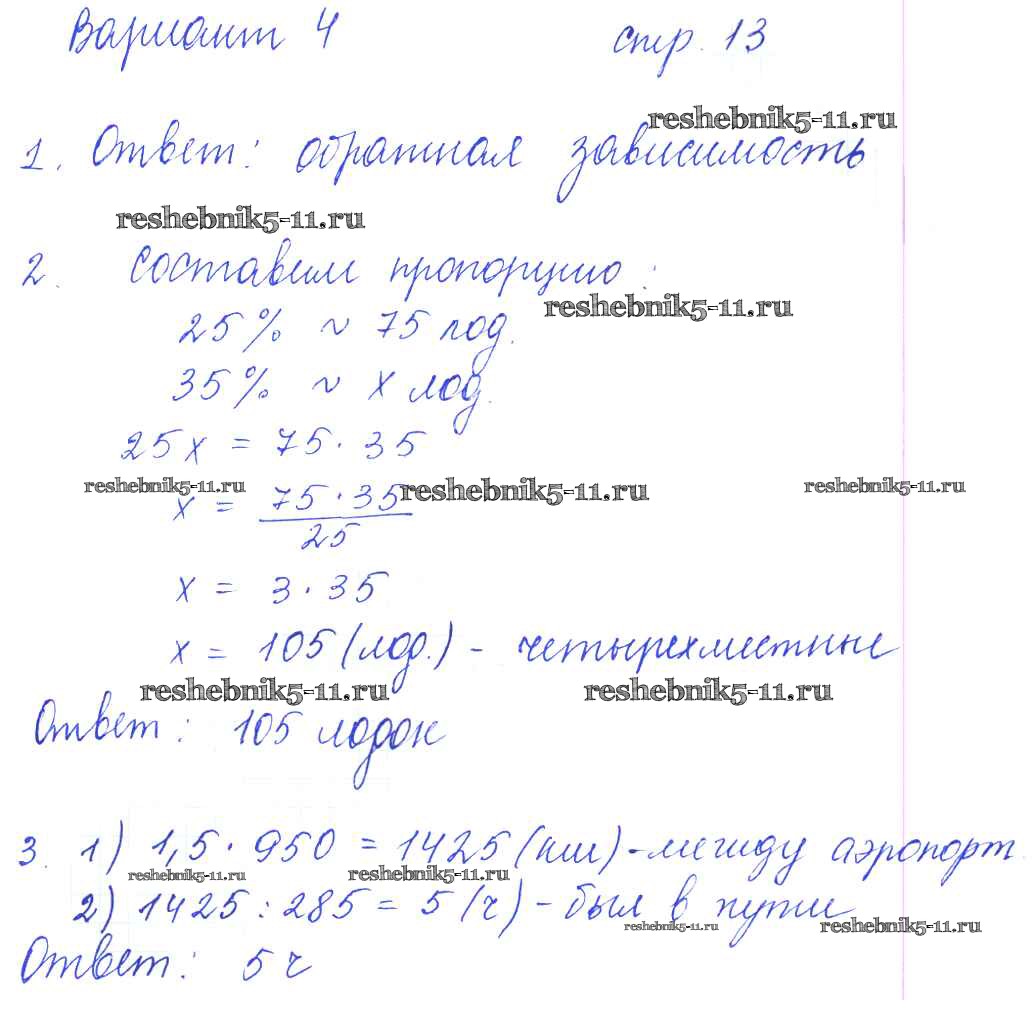 Вариант 4 стр. 13
reshebnik5-11.ru
1. Ответ: обратная зависимость
reshebnik5-11.ru
2. Составим пропорцию:
reshebnik5-11.ru
25% ~ 75 лод.
35% ~ х лод.
25х = 75 · 35
reshebnik5-11.ru reshebnik5-11.ru reshebnik5-11.ru
х = 75 · 35 / 25
х = 3 · 35
х = 105 (лод.) - четырехместные
reshebnik5-11.ru reshebnik5-11.ru
Ответ: 105 лодок
3. 1) 1,5 · 950 = 1425 (км) - между аэропорт.
reshebnik5-11.ru reshebnik5-11.ru
2) 1425 : 285 = 5 (ч) - был в пути
reshebnik5-11.ru reshebnik5-11.ru
Ответ: 5 ч